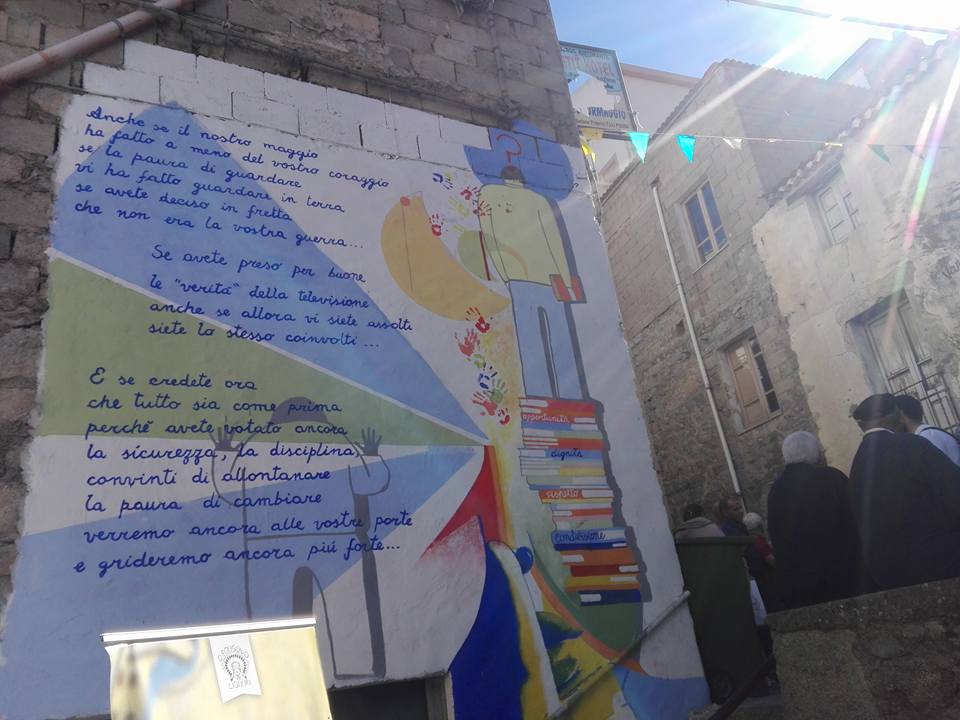 Anche se il nostro maggio
ha fatto a meno del vostro coraggio
se la paura di guardare
vi ha fatto guardare in terra
se avete deciso in fretta
che non era la vostra guerra...
Se avete preso per buone
le "verità" della televisione
anche se allora vi siete assolti
siete lo stesso coinvolti...
E se credete ora
che tutto sia come prima
perchè avete votato ancora
la sicurezza, la disciplina,
convinti di allontanare
la paura di cambiare
verremo ancora alle vostre porte
e grideremo ancora più forte...
?
opportunità
dignità
rispetto
condivisione